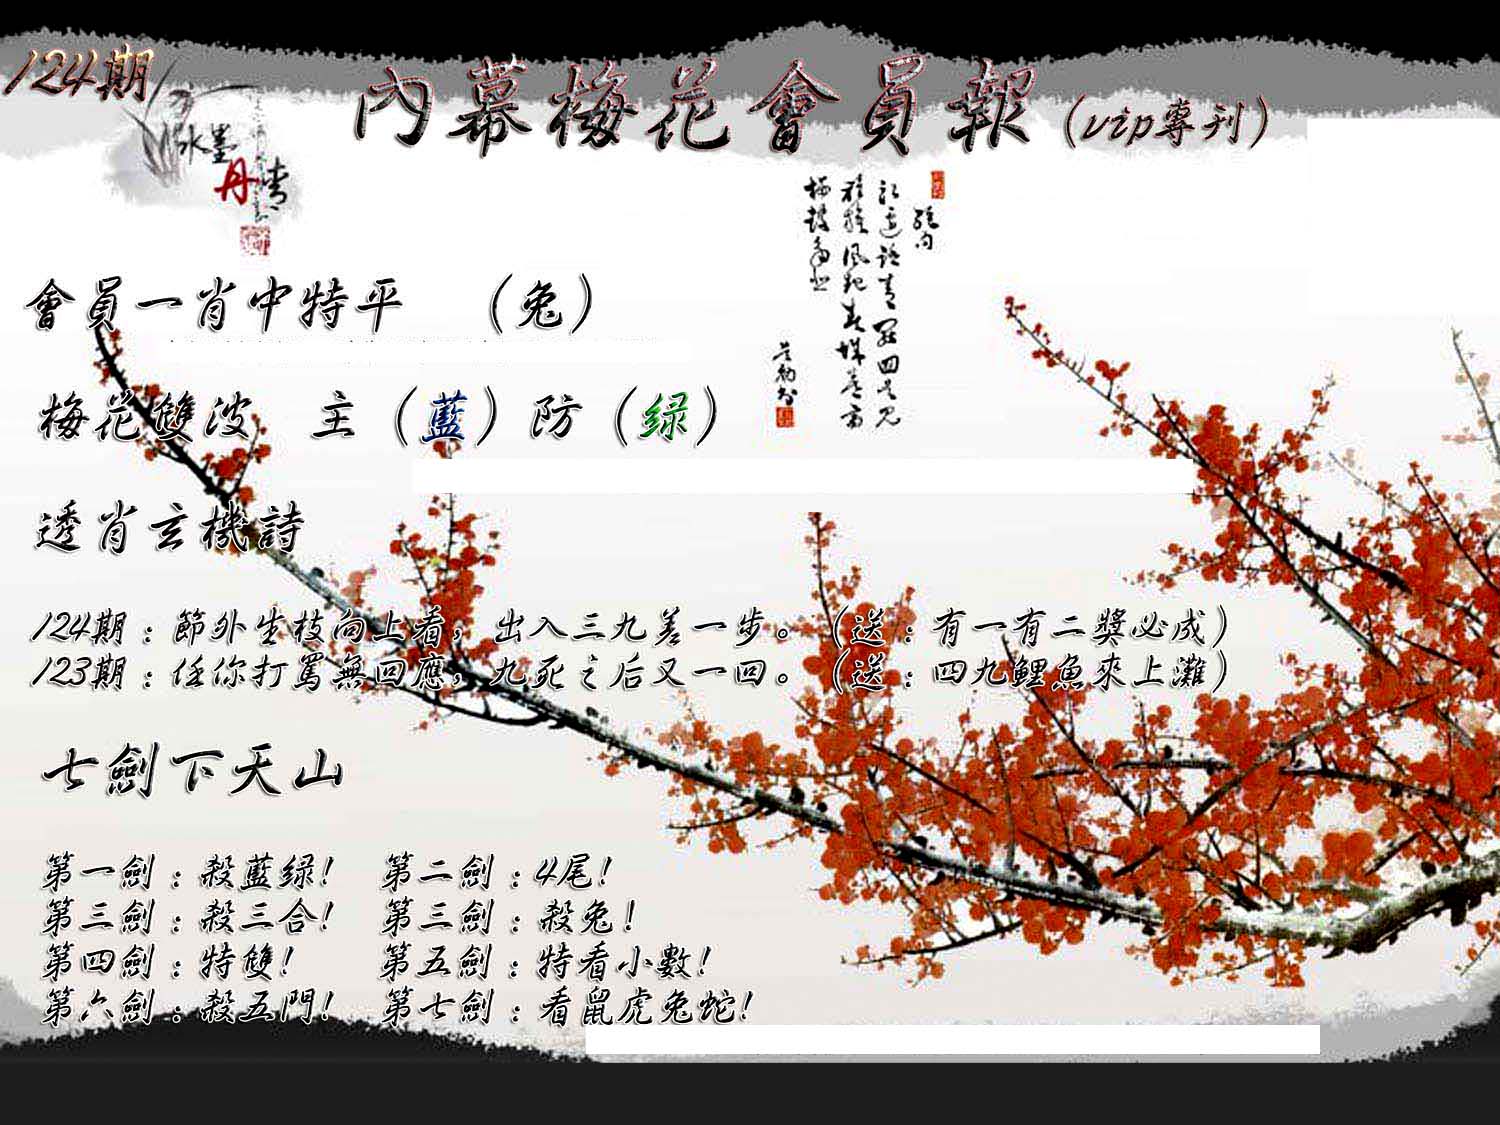 124期
內幕梅花會員報（vip專刊）
水墨
丹青
會員一肖中特平 （兔）
梅花雙波 主（藍）防（绿）
透肖玄機詩
124期：節外生枝向上看，出入三九差一步。（送：有一有二獎必成）
123期：任你打罵無回應，九死之后又一回。（送：四九鯉魚來上灘）
七劍下天山
第一劍：殺藍绿! 第二劍：4尾!
第三劍：殺三合! 第三劍：殺兔!
第四劍：特雙! 第五劍：特看小數!
第六劍：殺五門! 第七劍：看鼠虎兔蛇!